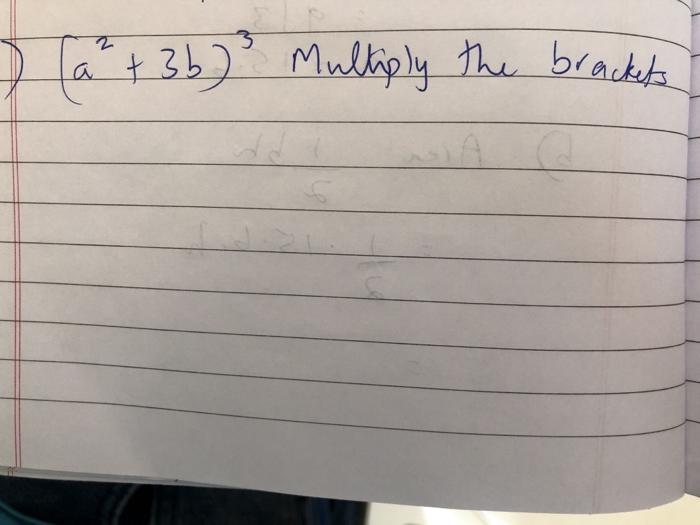 ) (a² + 3b)³ Multiply the brackets